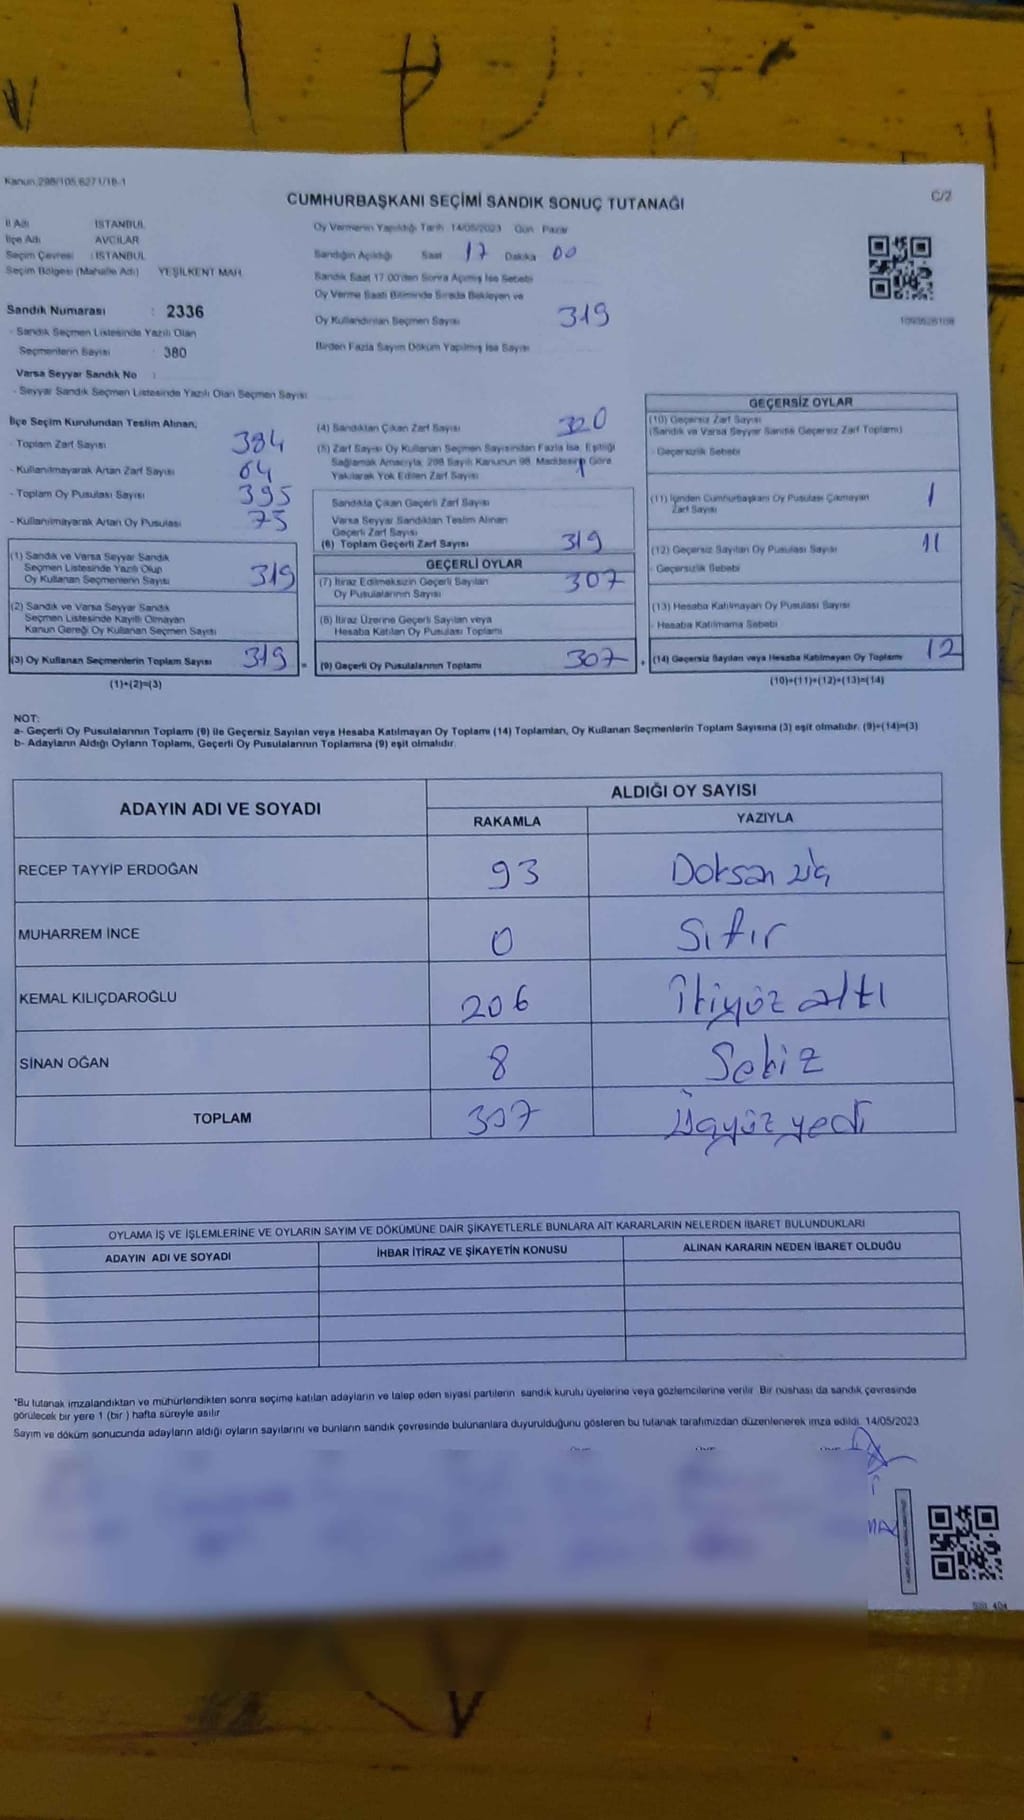 Kanun:298/105,6271/18-1
C/2
CUMHURBAŞKANI SEÇİMİ SANDIK SONUÇ TUTANAĞI
İl Adı İSTANBUL
İlçe Adı AVCILAR
Seçim Çevresi : İSTANBUL
Seçim Bölgesi (Mahalle Adı) YEŞİLKENT MAH.
Oy Vermenin Yapıldığı Tarih 14/05/2023 Gün Pazar
Sandığın Açıldığı Saat 17 Dakika 00
Sandık Saat 17.00'den Sonra Açılmış İse Sebebi
Oy Verme Saati Bitiminde Sırada Bekleyen ve
Oy Kullandırılan Seçmen Sayısı 319
Birden Fazla Sayım Döküm Yapılmış İse Sayısı
Sandık Numarası : 2336
- Sandık Seçmen Listesinde Yazılı Olan
Seçmenlerin Sayısı 380
Varsa Seyyar Sandık No :
- Seyyar Sandık Seçmen Listesinde Yazılı Olan Seçmen Sayısı
İlçe Seçim Kurulundan Teslim Alınan;
- Toplam Zarf Sayısı 384
- Kullanılmayarak Artan Zarf Sayısı 64
- Toplam Oy Pusulası Sayısı 395
- Kullanılmayarak Artan Oy Pusulası 75
(1) Sandık ve Varsa Seyyar Sandık
Seçmen Listesinde Yazılı Olup
Oy Kullanan Seçmenlerin Sayısı 319
(2) Sandık ve Varsa Seyyar Sandık
Seçmen Listesinde Kayıtlı Olmayan
Kanun Gereği Oy Kullanan Seçmen Sayısı
(3) Oy Kullanan Seçmenlerin Toplam Sayısı 319 =
(1)+(2)=(3)
(4) Sandıktan Çıkan Zarf Sayısı 320
(5) Zarf Sayısı Oy Kullanan Seçmen Sayısından Fazla İse, Eşitliği
Sağlamak Amacıyla, 298 Sayılı Kanunun 98. Maddesine Göre
Yakılarak Yok Edilen Zarf Sayısı 1
Sandıkta Çıkan Geçerli Zarf Sayısı
Varsa Seyyar Sandıktan Teslim Alınan
Geçerli Zarf Sayısı
(6) Toplam Geçerli Zarf Sayısı 319
GEÇERLİ OYLAR
(7) İtiraz Edilmeksizin Geçerli Sayılan
Oy Pusulalarının Sayısı 307
(8) İtiraz Üzerine Geçerli Sayılan veya
Hesaba Katılan Oy Pusulası Toplamı
(9) Geçerli Oy Pusulalarının Toplamı 307 +
GEÇERSİZ OYLAR
(10) Geçersiz Zarf Sayısı
(Sandık ve Varsa Seyyar Sandık Geçersiz Zarf Toplamı)
- Geçersizlik Sebebi
(11) İçinden Cumhurbaşkanı Oy Pusulası Çıkmayan
Zarf Sayısı 1
(12) Geçersiz Sayılan Oy Pusulası Sayısı 11
- Geçersizlik Sebebi
(13) Hesaba Katılmayan Oy Pusulası Sayısı
- Hesaba Katılmama Sebebi
(14) Geçersiz Sayılan veya Hesaba Katılmayan Oy Toplamı 12
(10)+(11)+(12)+(13)=(14)
NOT:
a- Geçerli Oy Pusulalarının Toplamı (9) ile Geçersiz Sayılan veya Hesaba Katılmayan Oy Toplamı (14) Toplamları, Oy Kullanan Seçmenlerin Toplam Sayısına (3) eşit olmalıdır. (9)+(14)=(3)
b- Adayların Aldığı Oyların Toplamı, Geçerli Oy Pusulalarının Toplamına (9) eşit olmalıdır.
ADAYIN ADI VE SOYADI
ALDIĞI OY SAYISI
RAKAMLA YAZIYLA
RECEP TAYYİP ERDOĞAN 93 Doksan üç
MUHARREM İNCE 0 Sıfır
KEMAL KILIÇDAROĞLU 206 İkiyüz altı
SİNAN OĞAN 8 Sekiz
TOPLAM 307 Üçyüz yedi
OYLAMA İŞ VE İŞLEMLERİNE VE OYLARIN SAYIM VE DÖKÜMÜNE DAİR ŞİKAYETLERLE BUNLARA AİT KARARLARIN NELERDEN İBARET BULUNDUKLARI
ADAYIN ADI VE SOYADI İHBAR İTİRAZ VE ŞİKAYETİN KONUSU ALINAN KARARIN NEDEN İBARET OLDUĞU
*Bu tutanak imzalandıktan ve mühürlendikten sonra seçime katılan adayların ve talep eden siyasi partilerin sandık kurulu üyelerine veya gözlemcilerine verilir. Bir nüshası da sandık çevresinde
görülecek bir yere 1 (bir) hafta süreyle asılır
Sayım ve döküm sonucunda adayların aldığı oyların sayılarını ve bunların sandık çevresinde bulunanlara duyurulduğunu gösteren bu tutanak tarafımızdan düzenlenerek imza edildi. 14/05/2023